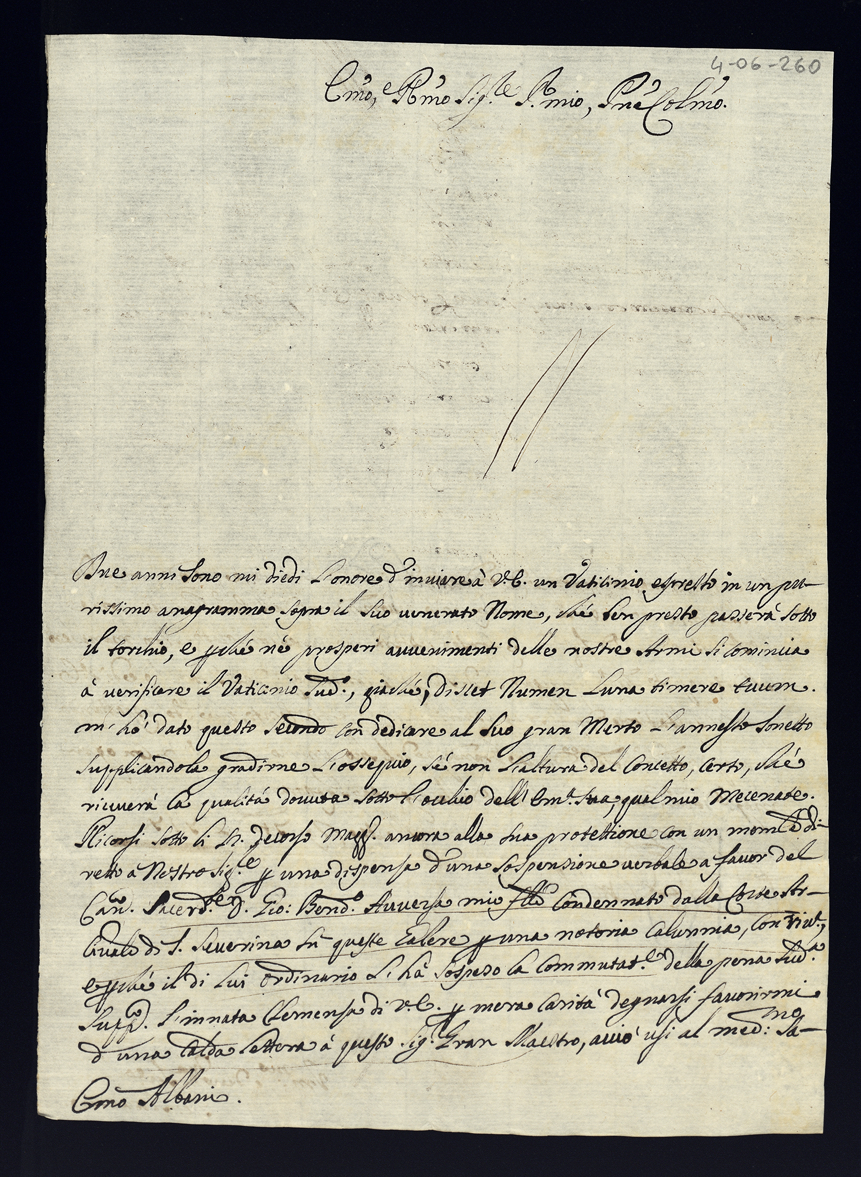 4-06-260
Emo, e Rmo Sigre P.rone mio, Pne Colmo.
Due anni sono mi diedi l'onore d'inviare à V.E. un Vaticinio espresso in un pu-
rissimo anagramma sopra il suo venerato Nome, che ben presto passerà sotto
il torchio, e perche ne prosperi avvenimenti delle nostre Armi si comincia
à verificare il Vaticinio Sud.o, giache, discet Numen Luna timere tuum.
m'hò dato questo secondo con dedicare al Suo gran Merto l'annesso Sonetto
supplicandola gradirne l'ossequio, sé non l'altura del Concetto, certo, che
riceverà la qualità dovuta sotto l'occhio dell'Em.a Sua, qual mio Mecenate.
Ricorsi sotto li decorso Magg.o ancora alla sua protettione con un mem.le di-
retto a Nostro Sig.re per una dispensa d'una sospensione verbale a favor del
Can.co Sacerd.te D. Gio: Bened.o Aversa mio fllo condennato dalla Corte Ar-
civale di S. Severina sù queste Galere per una notoria Calunnia, con
e perche il di lui Ordinario li hà sospeso la Commutat.e della pena Sud.a
Supp.o l'innata Clemenza di V.E. per mera carità degnarsi favorirmi
d'una calda lettera à questo Sig.r Gran Maestro, acciò usi al med:mo Sa-
Emo Albani.